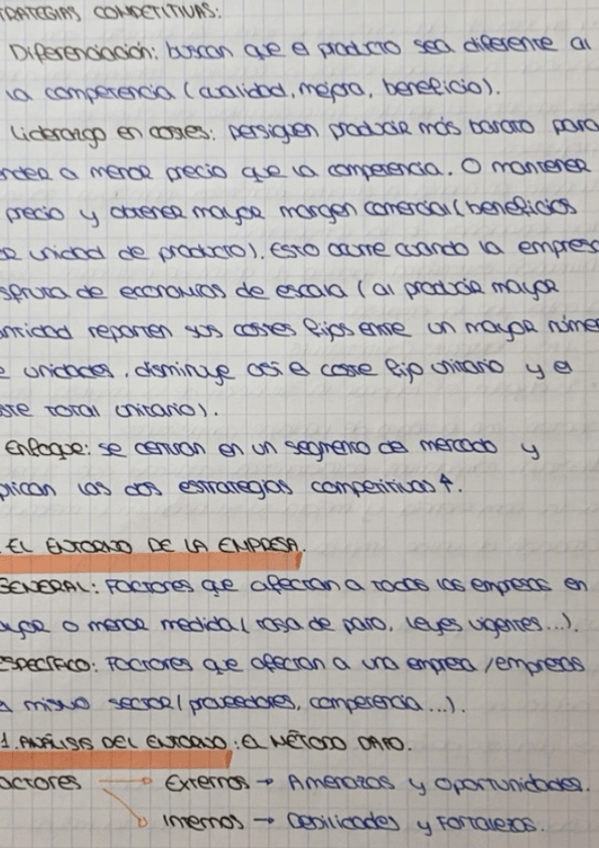 TRATEGIAS COMPETITIVAS:
Diferenciación: buscan que el producto sea diferente al
la competencia (cualidad, mejora, beneficio).
Liderazgo en costes: persiguen producir más barato para
nder a menor precio que la competencia. O mantener
precio y obtener mayor margen comercial (beneficios
or unidad de producto). Esto ocurre cuando la empresa
sfruta de economías de escala (al producir mayor
antidad reparten sus costes fijos entre un mayor númer
e unidades, disminuye así el coste fijo unitario y el
ste total unitario).
Enfoque: se centran en un segmento de mercado y
plican las dos estrategias competitivas ↑.
EL ENTORNO DE LA EMPRESA.
GENERAL: Factores que afectan a todas las empresas en
ayor o menor medida (tasa de paro, leyes vigentes...).
ESPECÍFICO: Factores que afectan a una empresa/empresas
mismo sector (proveedores, competencia...).
1. ANÁLISIS DEL ENTORNO: EL MÉTODO DAFO.
actores → Externos → Amenazas y Oportunidades.
Internos → Debilidades y Fortalezas.